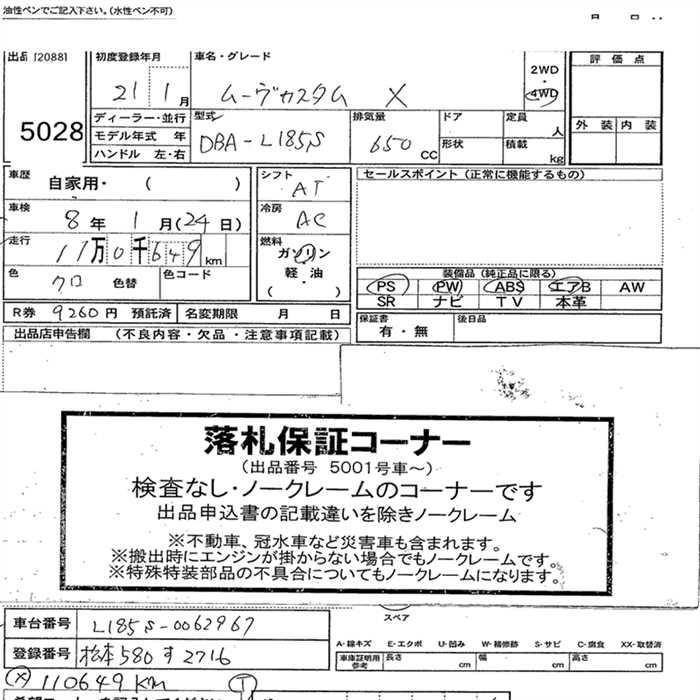 油性ペンでご記入下さい。(水性ペン不可)
出品 [2088]
5028
初度登録年月
21 1月
車名・グレード
ムーヴカスタム X
2WD
4WD
評価点
外装 内装
ディーラー・並行
モデル年式 年
ハンドル 左・右
型式
DBA-L185S
排気量
650 CC
ドア
形状
定員 人
積載 kg
車歴 自家用・( )
車検 8年 1月(24日)
走行 11万0千649km
色 クロ 色替
色コード
シフト AT
冷房 AC
燃料
ガソリン
軽・油
( ・ )
セールスポイント(正常に機能するもの)
装備品(純正品に限る)
PS PW ABS エアB AW
SR ナビ TV 本革
R券 9260円 預託済 名変期限 月 日
保証書 有・無
後日品
出品店申告欄 (不良内容・欠品・注意事項記載)
落札保証コーナー
(出品番号 5001号車~)
検査なし・ノークレームのコーナーです
出品申込書の記載違いを除きノークレーム
※不動車、冠水車など災害車も含まれます。
※搬出時にエンジンが掛からない場合でもノークレームです。
※特殊特装部品の不具合についてもノークレームになります。
スペア
車台番号 L185S-0062967
登録番号 松本580す2716
A-線キズ E-エクボ U-凹み W-補修跡 S-サビ C-腐食 XX-取替済
車庫証明用参考 長さ cm 幅 cm 高さ cm
110649km